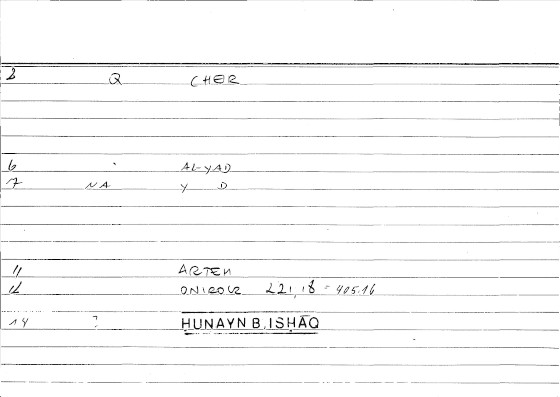 2 Q CHER
6 AL-YAD
7 NA Y D
11 ARTEM
12 ONIROCR 221,18 = 405.16
14 ? ḤUNAYN B. ISḤĀQ